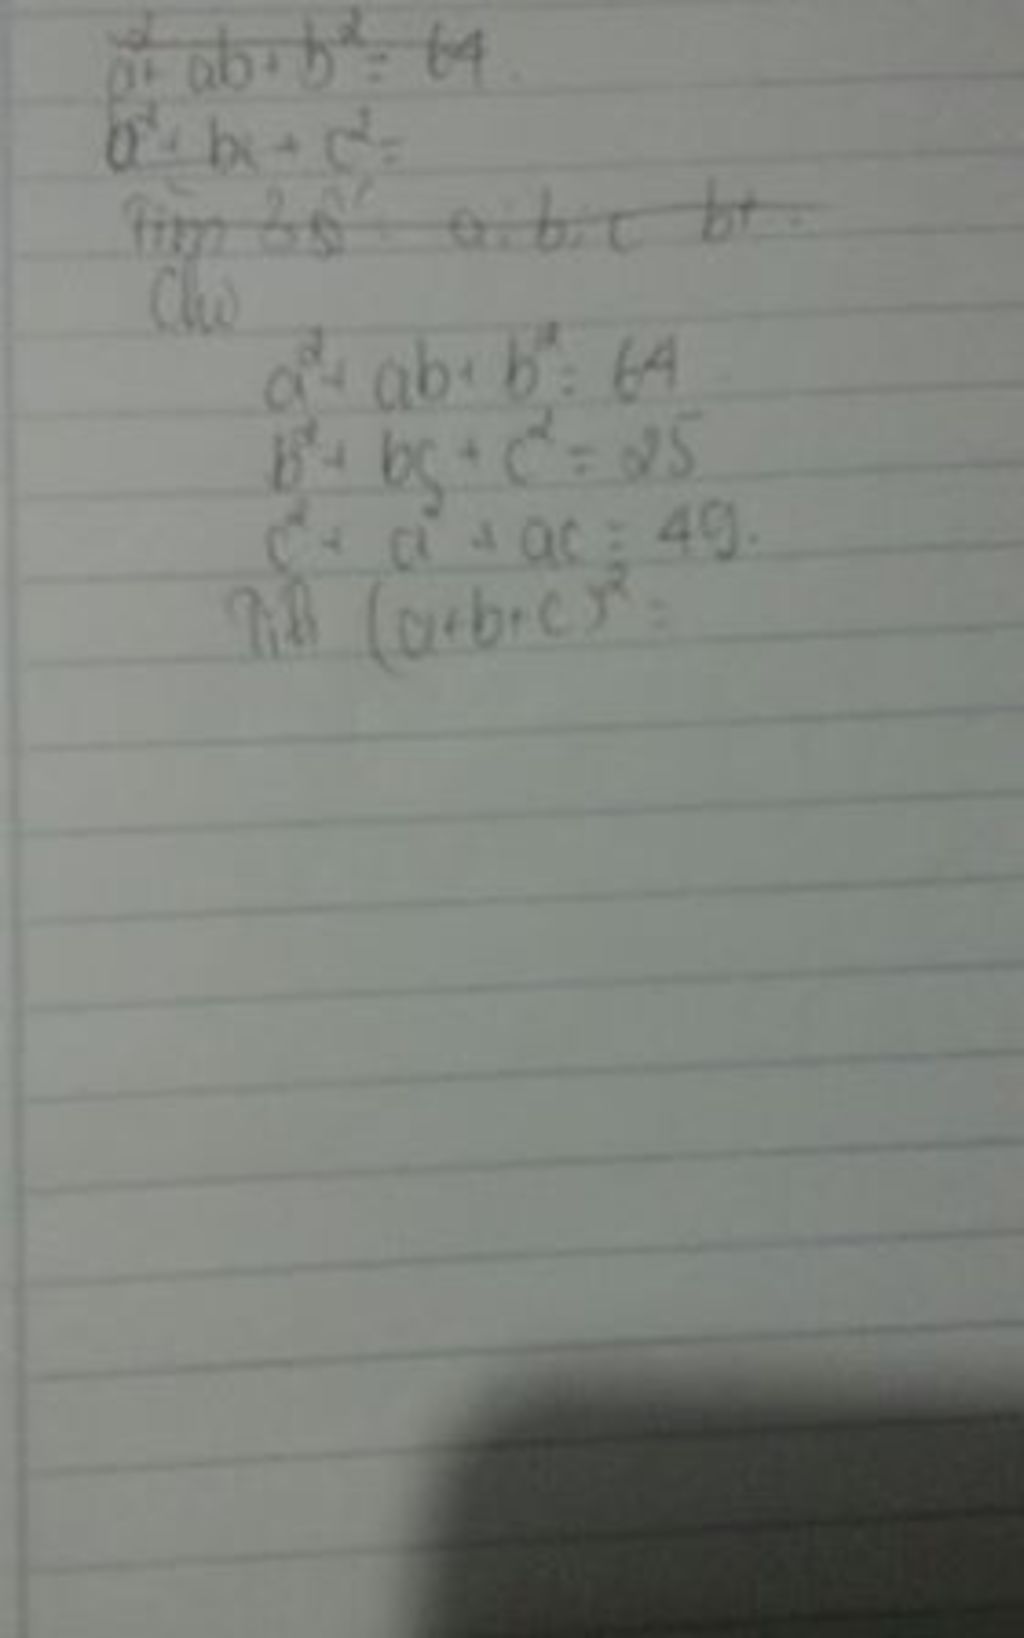 a² + ab + b² = 64.
b² + bc + c² =
Tìm 3 số a, b, c bt.
Cho
a² + ab + b² = 64
b² + bc + c² = 25
c² + a² + ac = 49.
(a+b+c)² =